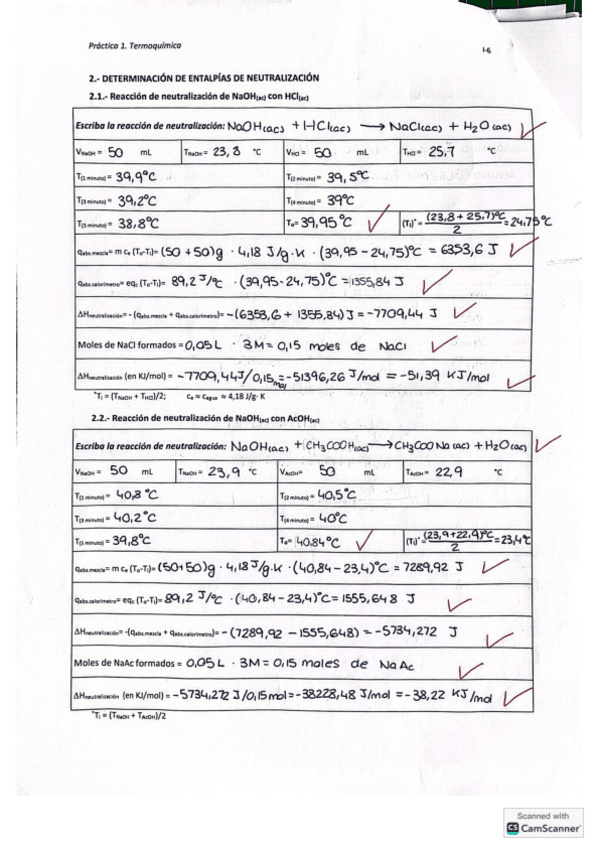 Práctica 1. Termoquímica
I-6
2.- DETERMINACIÓN DE ENTALPÍAS DE NEUTRALIZACIÓN
2.1.- Reacción de neutralización de NaOH(ac) con HCl(ac)
Escriba la reacción de neutralización: NaOH(ac) + HCl(ac) → NaCl(ac) + H2O(ac)
VNaOH = 50 mL TNaOH = 23,8 °C VHCl = 50 mL THCl = 25,7 °C
T(1 minuto) = 39,9°C T(2 minuto) = 39,5°C
T(3 minuto) = 39,2°C T(4 minuto) = 39°C
T(5 minuto) = 38,8°C To= 39,95°C (Ti)* = (23,8 + 25,7)°C/2 = 24,75°C
qabs.mezcla= m ce (To-Ti)= (50+50)g · 4,18 J/g·K · (39,95 - 24,75)°C = 6353,6 J
qabs.calorímetro= eqc (To-Ti)= 89,2 J/°C · (39,95-24,75)°C = 1355,84 J
ΔHneutralización= - (qabs.mezcla + qabs.calorímetro)= -(6353,6 + 1355,84)J = -7709,44 J
Moles de NaCl formados = 0,05L · 3M = 0,15 moles de NaCl
ΔHneutralización (en KJ/mol) = -7709,44J/0,15 mol = -51396,26 J/mol = -51,39 KJ/mol
*Ti = (TNaOH + THCl)/2; ce ≈ cagua ≈ 4,18 J/g· K
2.2.- Reacción de neutralización de NaOH(ac) con AcOH(ac)
Escriba la reacción de neutralización: NaOH(ac) + CH3COOH(ac) → CH3COONa(ac) + H2O(ac)
VNaOH = 50 mL TNaOH = 23,9 °C VAcOH= 50 mL TAcOH = 22,9 °C
T(1 minuto) = 40,8°C T(2 minuto) = 40,5°C
T(3 minuto) = 40,2°C T(4 minuto) = 40°C
T(5 minuto) = 39,8°C To= 40.84°C (Ti)* = (23,9+22,9)°C/2 = 23,4°C
qabs.mezcla= m ce (To-Ti)= (50+50)g · 4,18 J/g·K · (40,84 - 23,4)°C = 7289,92 J
qabs.calorímetro= eqc (To-Ti)= 89,2 J/°C · (40,84 - 23,4)°C = 1555,648 J
ΔHneutralización= -(qabs.mezcla + qabs.calorímetro)= - (7289,92 - 1555,648) = -5734,272 J
Moles de NaAc formados = 0,05L · 3M = 0,15 moles de NaAc
ΔHneutralización (en KJ/mol) = -5734,272 J/0,15mol = -38228,48 J/mol = -38,22 KJ/mol
*Ti = (TNaOH + TAcOH)/2
Scanned with
CS CamScanner